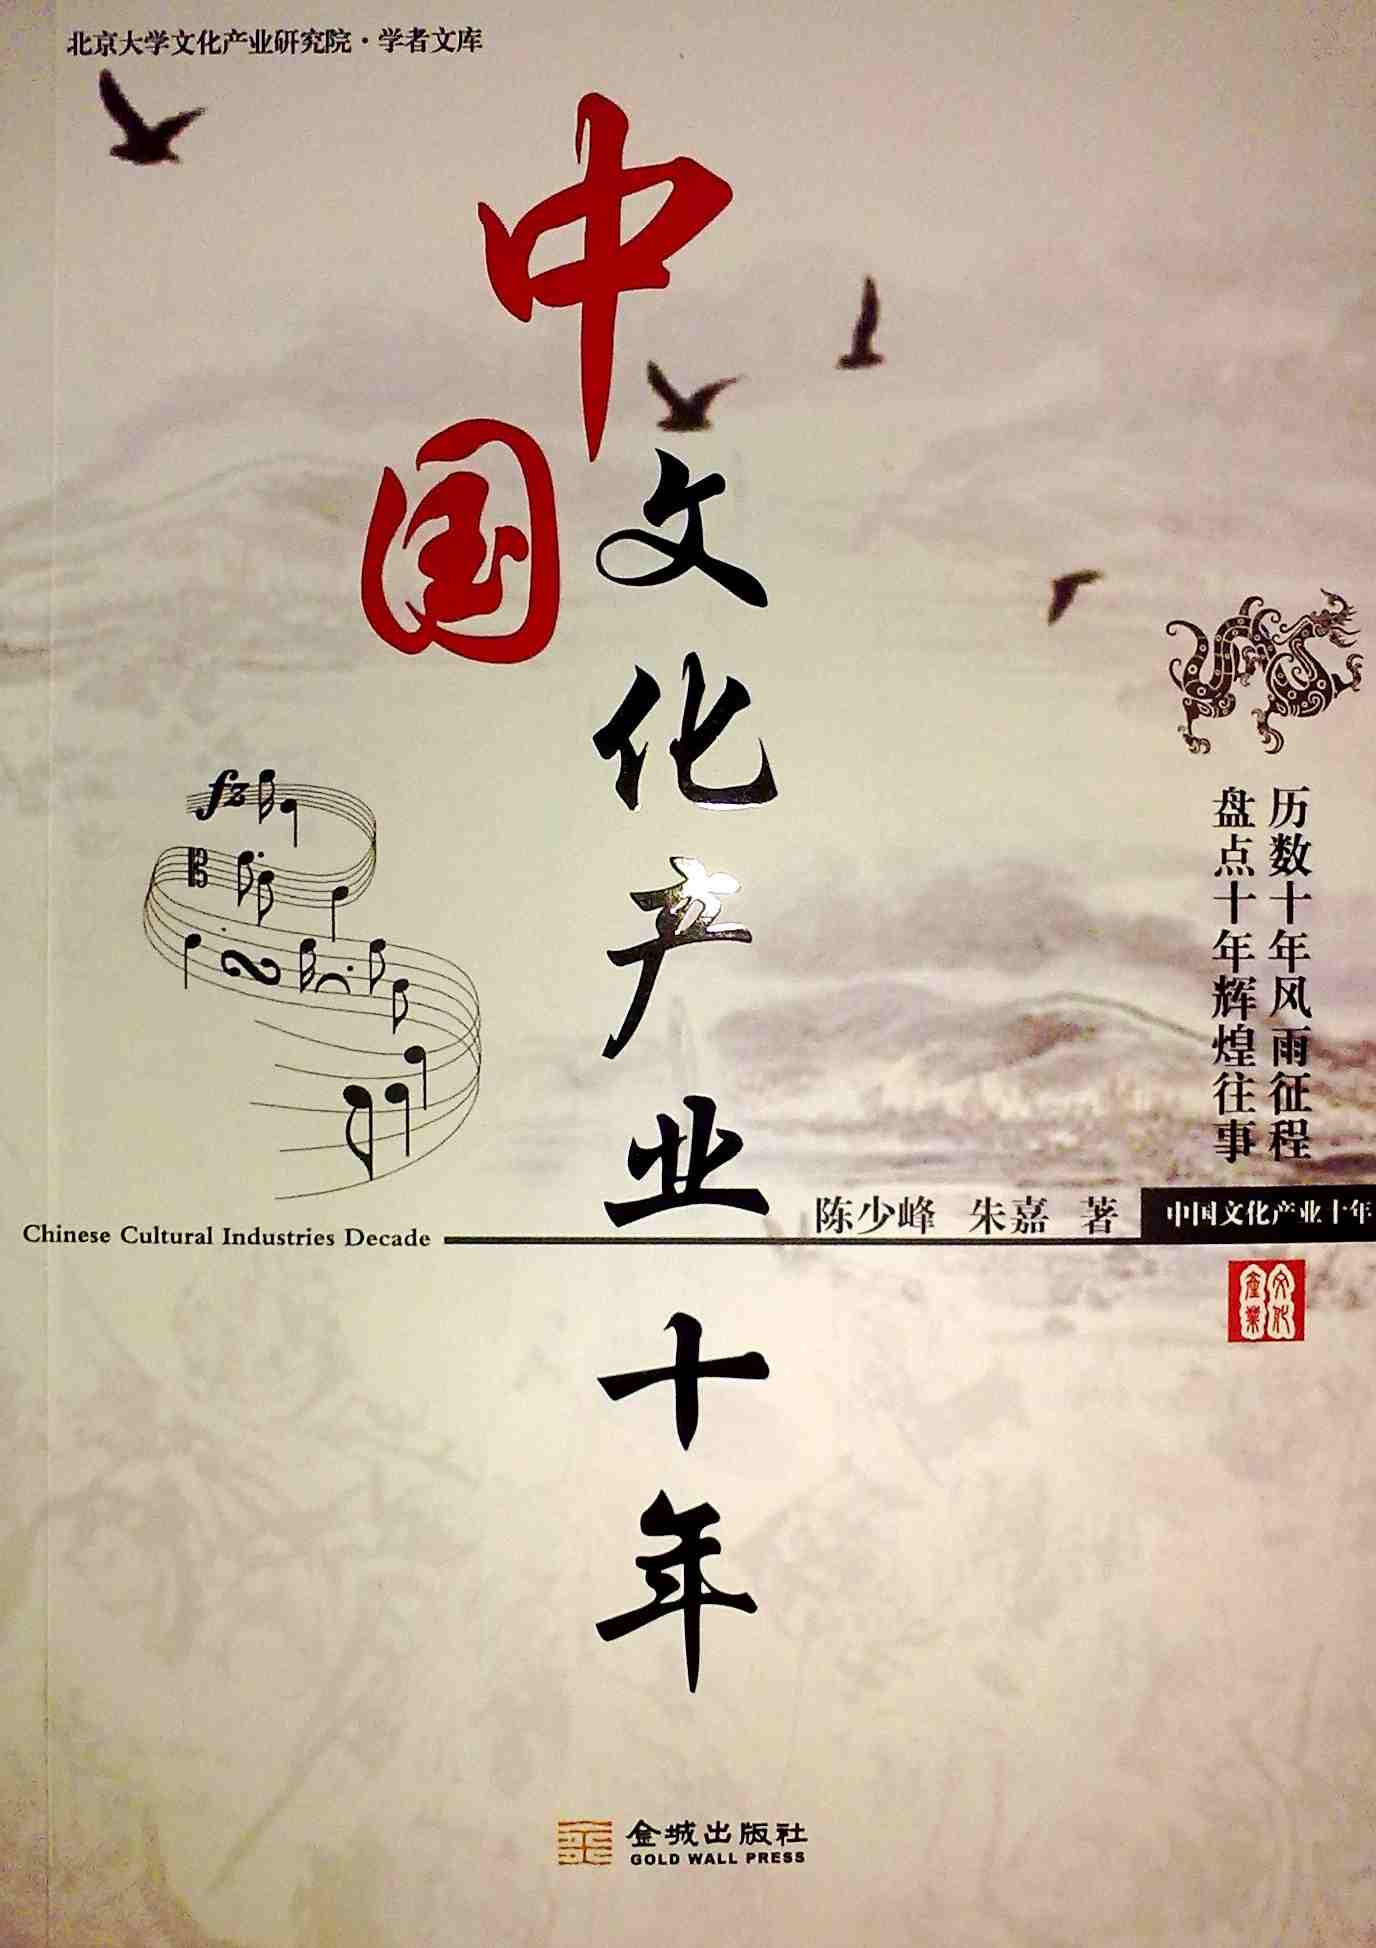 北京大学文化产业研究院·学者文库
中国
文化产业十年
fz
历数十年风雨征程
盘点十年辉煌往事
Chinese Cultural Industries Decade
陈少峰 朱嘉 著
中国文化产业十年
文化
產業
金城出版社
GOLD WALL PRESS